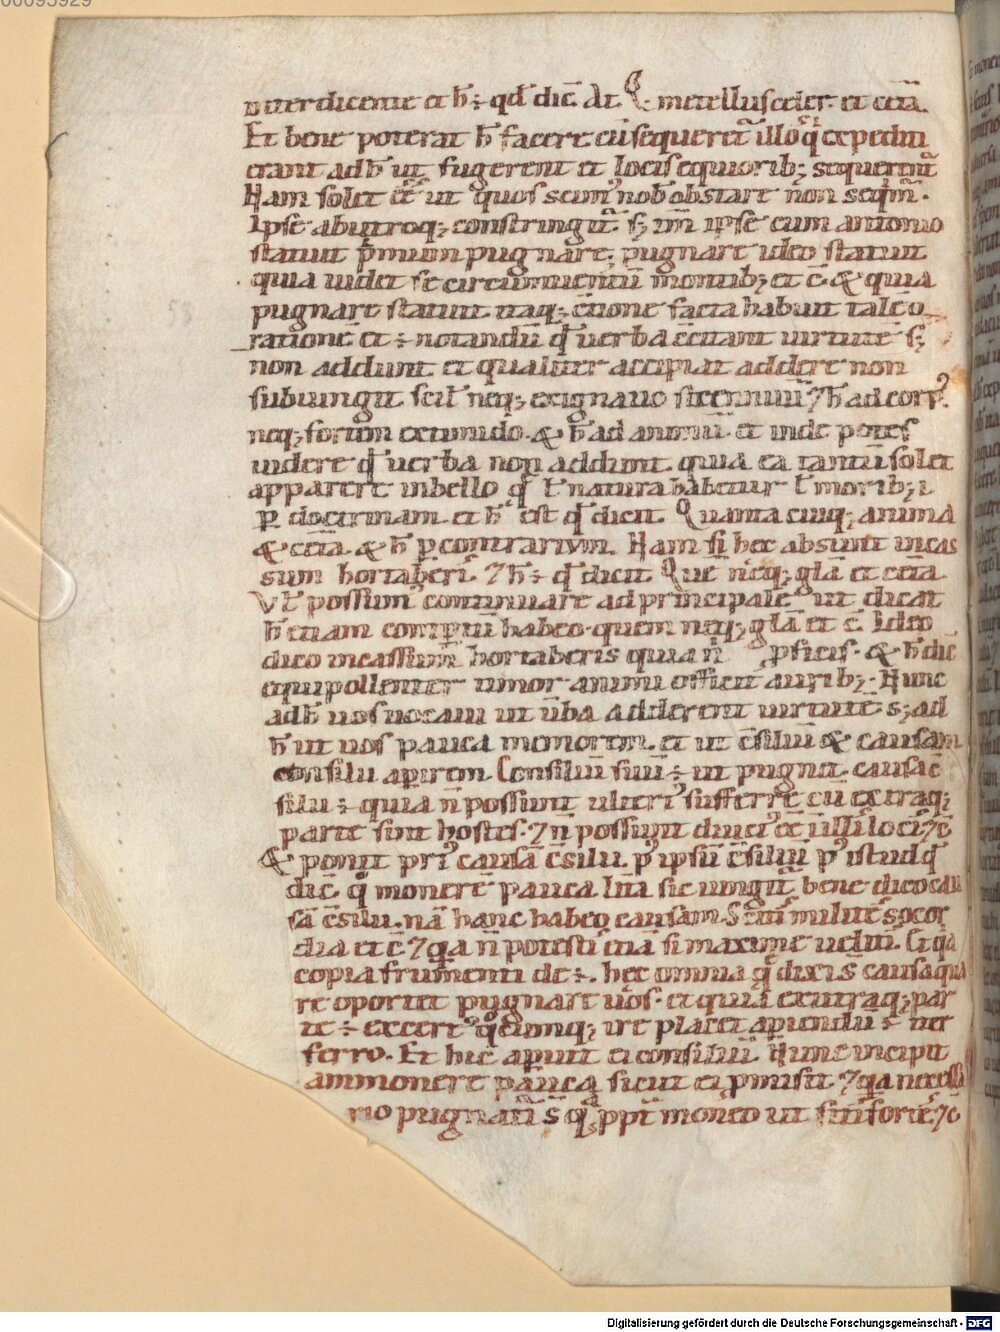 00095929
interdicente et h̄ ÷ qd̄ dic̄ At Q. metellus celer et cet̄a.
Et bene poterat h̄ facere cū sequeret̄ illoꝰ q̄ expediti
erant ad h̄ ut fugerent et locis equiorib; sequerent̄
Nam solet eē ut quos scimꝰ nob̄ obstare non seqm̄r.
Ipse ab utroq; constringit̄. s; tm̄ ipse cum antonio
statuit p̄mum pugnare. pugnare ideo statuit
quia uidet se circumuentū montib; et c̄ & quia
pugnare statuit itaq; ctione facta habuit talē o
rationē et ÷ notandū qd̄ uerba c̄citant uirtutē s;
non addunt et qualiter accipiat addere non
subiungit. scil̄ neq; ex ignauo strennuū ⁊ h̄ ad corpꝰ.
neq; fortem ex timido. & h̄ ad animū et inde potes
uidere qd̄ uerba non addunt. quia ea tantū solet
apparere in bello qd̄ t̄ natura habetur t̄ morib; i.
p̱ doctrinam et h̄ est qd̄ dicit. Quanta cuiq; anima
& cet̄a & h̄ p̱ contrarium. Nam si hec absunt incas
sum hortaberis ⁊ h̄ ÷ qd̄ dicit Quē neq; gl̄a et cet̄a
Vl̄ possumꝰ continuare ad principale ut dicat
h̄ etiam comptū habeo. quem neq; gl̄a et c̄. Ideo
dico incassum hortaberis quia n̄ p̱ficis. & h̄ dic̄
equipollenter timor animi officit aurib; Nunc
ad h̄ uos uocaui ut ūba adderent uirtutē. s; ad
h̄ ut uos pauca memorem. et ut c̄siliū & causam
consilii aperirem. Consiliū suū ÷ ut pugnet. causa c̄
silii ÷ quia n̄ possunt ulteriꝰ sufferre cū ex traq;
parte sint hostes. ⁊ n̄ possunt diuciꝰ eē in illis loc̄ ⁊c̄
& ponit priꝰ causā c̄silii. pꝰ ipsū c̄siliū pꝰ istud qd̄
dic̄ q̄ monerē pauca. Litt̄a sic iungit̄. bene dico cau
sā c̄silii. nā hanc habeo causam. Scitis milites socor
dia et c̄ ⁊ q̄a n̄ potestis etiā si maxime uelim̄. Et q̄a
copia frumenti de ÷. hec omnia q̄ dixi s̄ causa qua
re oportet pugnare uos. et quia ex utraq; par
te ÷ excertꝰ qcūmq; ire placet aperiendū ÷ iter
ferro. Et hic aperit ei consiliū. Nunc incipit
ammonere pauca sicut ei p̄misit ⁊ q̄a necessa
rio pugnatūi s̄ q̄ ppt̄ moneo ut sitis fortes ⁊c̄
Digitalisierung gefördert durch die Deutsche Forschungsgemeinschaft - DFG